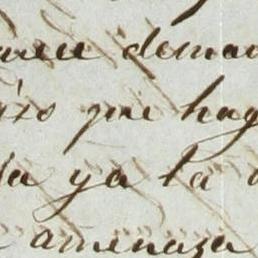 dema
izo que hag
da ya la
amenaza